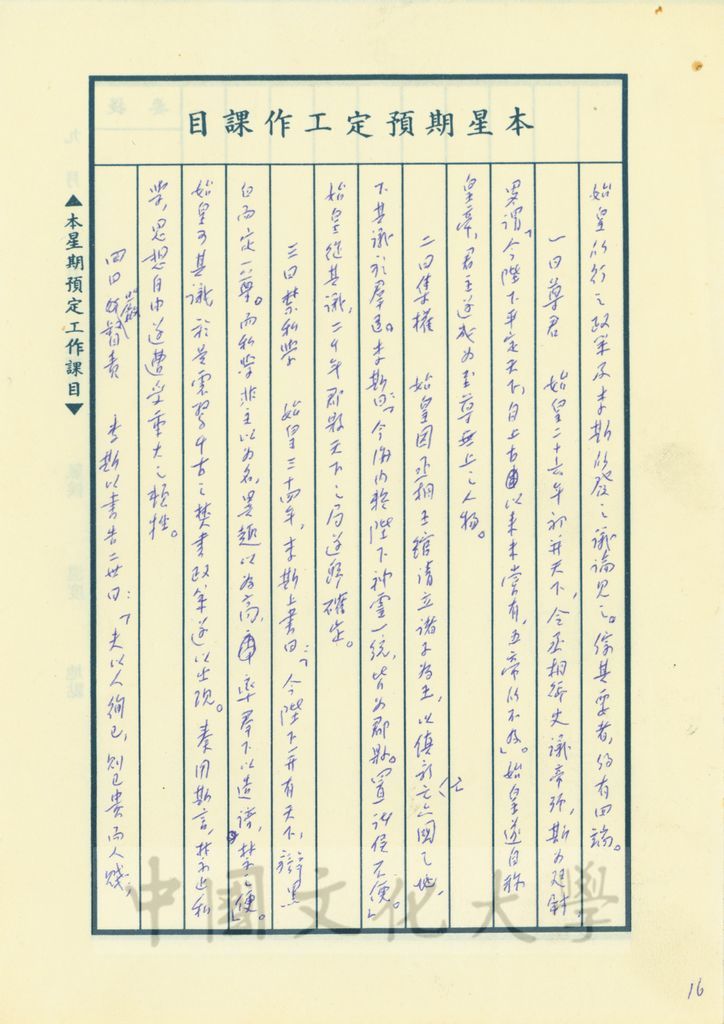 本星期預定工作課目
始皇所行之政策及李斯所發之議論見之。綜其要者,約有四端。
一曰尊君 始皇二十六年初并天下,令丞相御史議帝號,斯為廷尉
畧謂「今陛下平定天下,自上古以來未嘗有,五帝所不及」。始皇遂自稱
皇帝,君主遂成為至尊無上之人物。
二曰集權 始皇因丞相王綰請立諸子為王,以填六國之地,
下其議於羣臣。李斯曰:「今海內賴陛下神靈一統,皆為郡縣。置諸侯不便」
始皇從其議,二千年郡縣天下之局遂歸確定。
三曰禁私學 始皇三十四年,李斯上書曰:「今陛下并有天下,辯黑
白而定一尊。而私學非主以為名,異趣以為高,率羣下以造謗,禁之便。」
始皇可其議於是震驚千古之焚書政策遂以出現。秦用斯言,禁止私
學,思想自由遂遭受重大之犧牲。
四曰嚴督責 李斯以書告二世曰:「夫以人徇己,則己貴而人賤,
▲本星期預定工作課目▼
中國文化大學
16